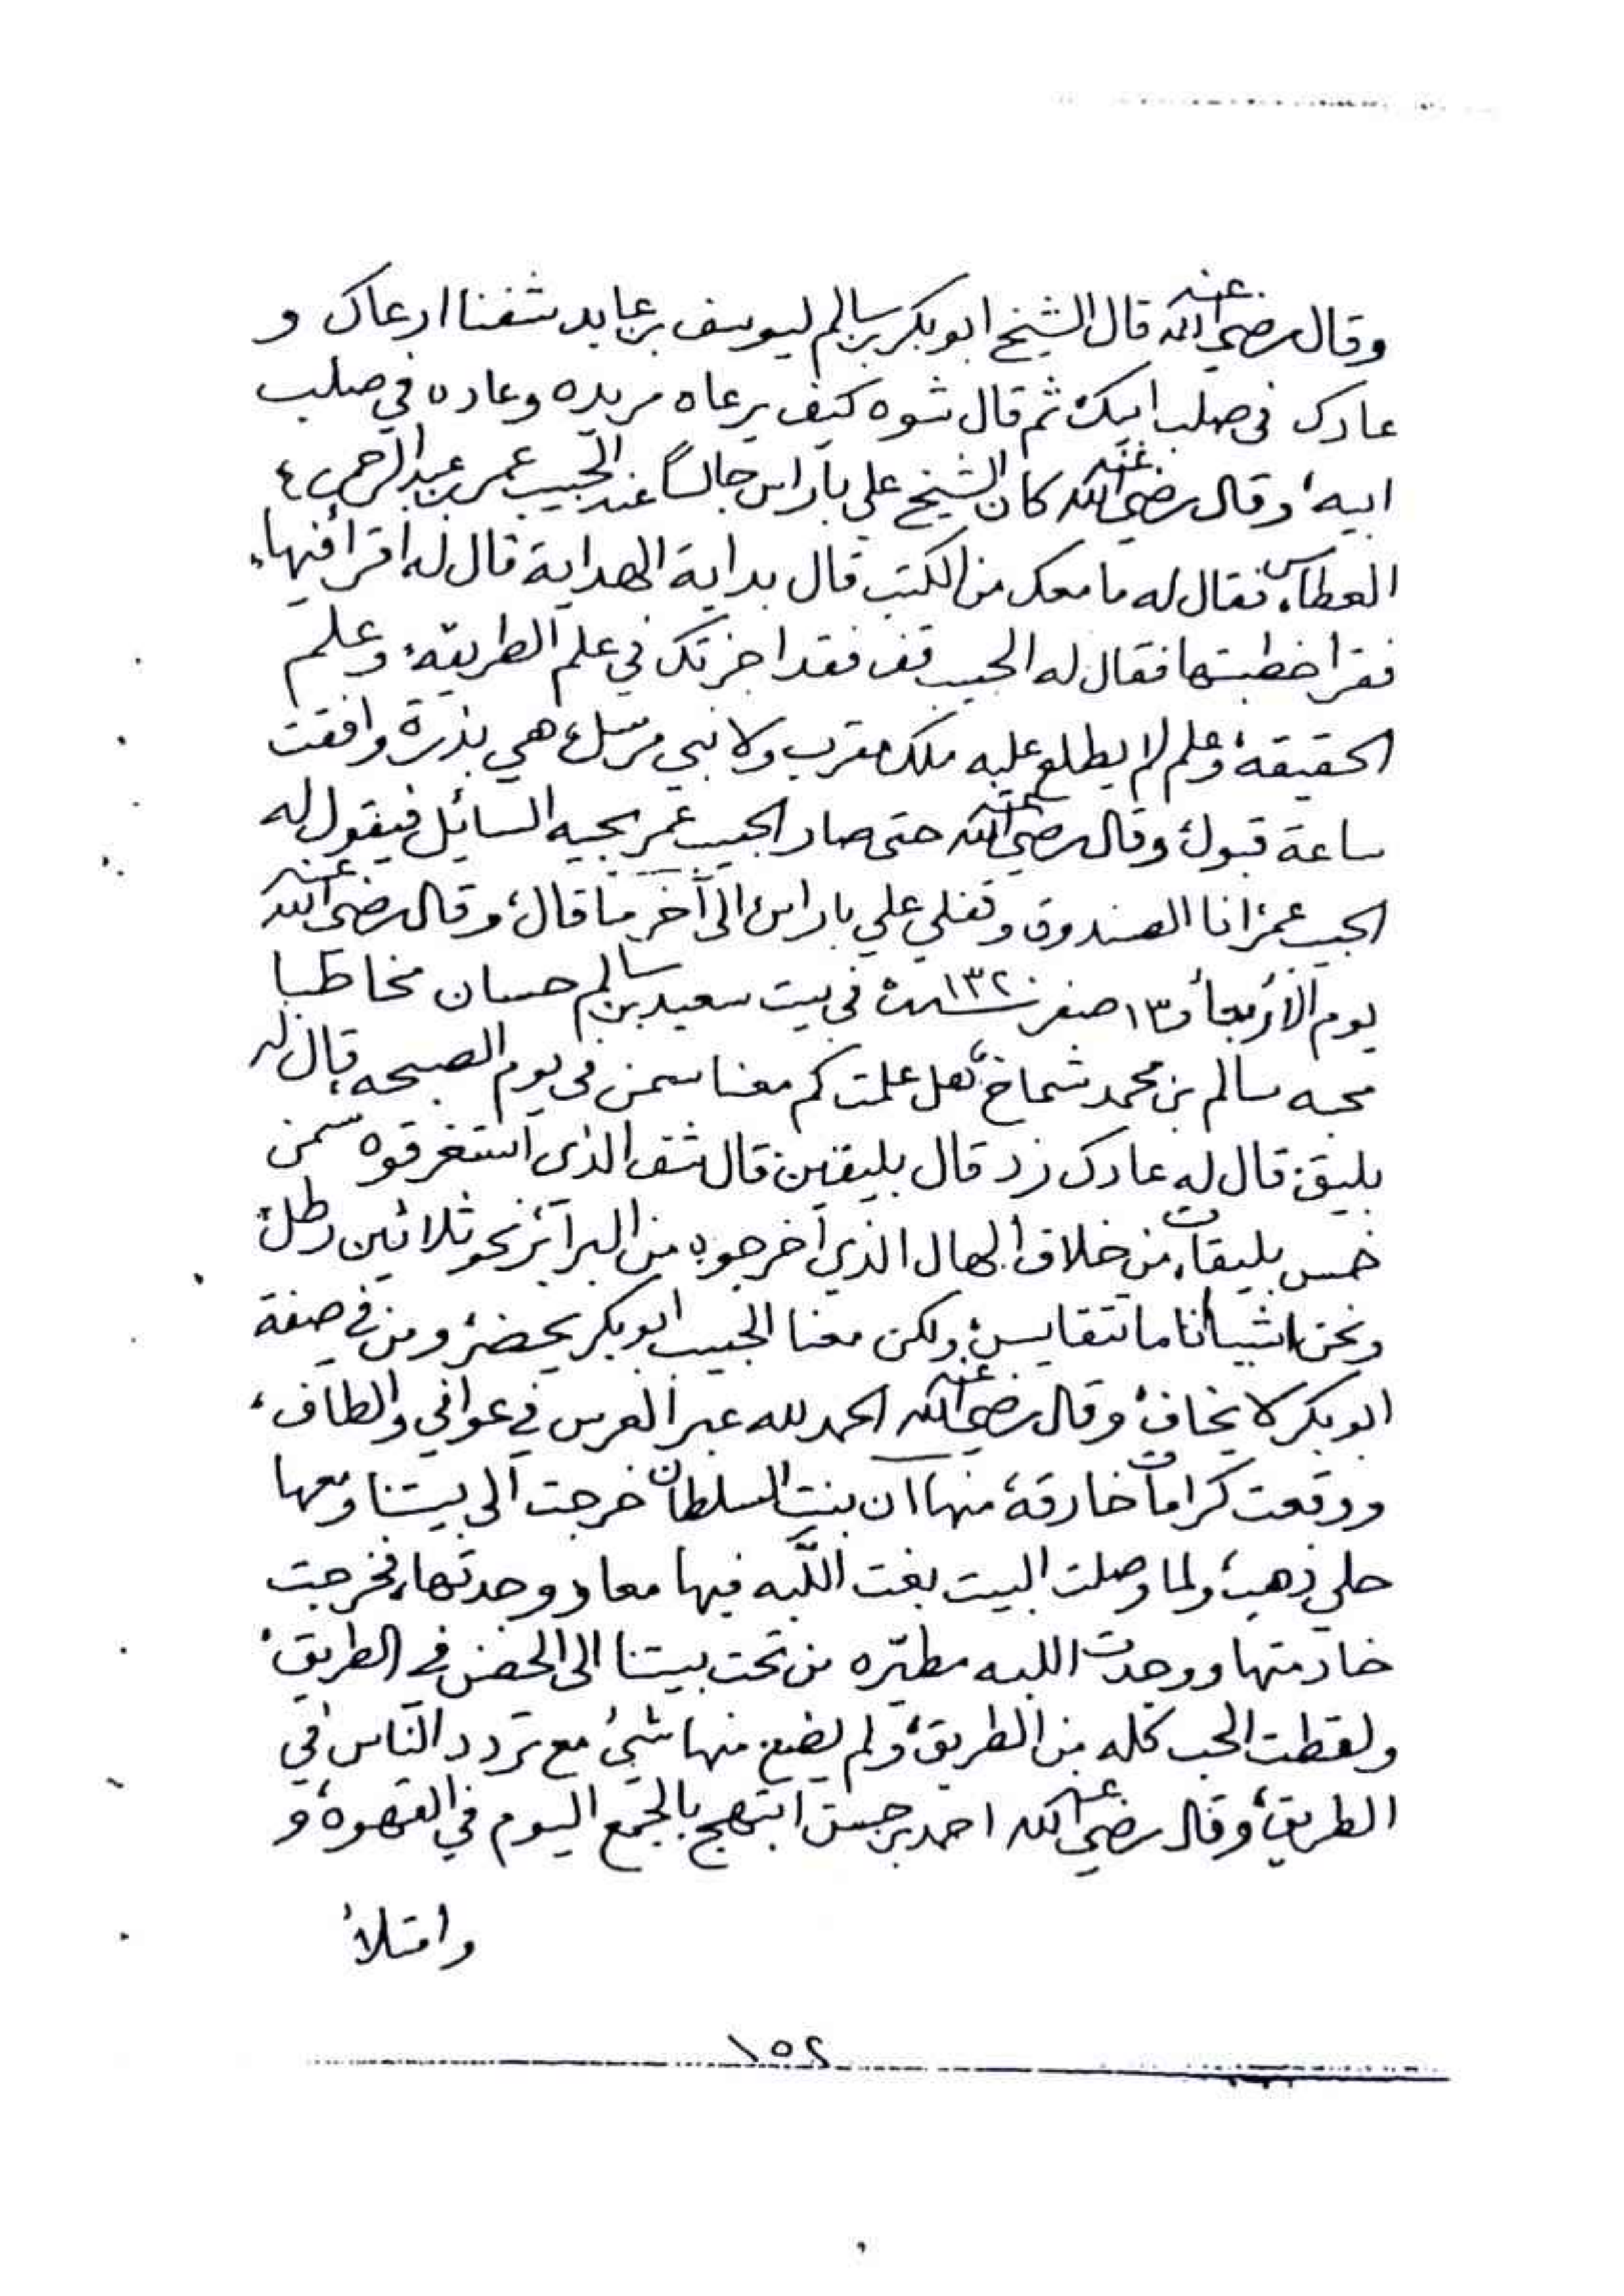 وقال رضي الله عنه قال الشيخ ابوبكر بن سالم ليوسف بن عابد شفنا ارعاك و
عادك في صلب ابيك ثم قال شوه كيف يرعاه مريده وعاده في صلب
ابيه، وقال رضي الله عنه كان الشيخ علي باراس جالساً عند الحبيب عمر بن عبدالرحمن
العطاس، فقال له ما معك من الكتب قال بداية الهداية قال له اقرأ فيها،
فقرا خطبتها فقال له الحبيب قف فقد اجزتك في علم الطريقه، وعلم
الحقيقة، وعلم لم يطلع عليه ملك مقرب ولا نبي مرسل، هي بذرة وافقت
ساعة قبول، وقال رضي الله عنه حتى صار الحبيب عمر يجيه السائل فيقول له
الحبيب عمر، انا الصندوق وقفلي علي باراس، الى آخر ما قال، وقال رضي الله عنه
يوم الأربعاء و١٣ صفر سنة ١٣٢٠ في بيت سعيد بن سالم حسان مخاطبا
محبه سالم بن محمد شماخ، هل علمت كم معنا سمن في يوم الصبحه، قال له
بليق، قال له عادك زد قال بليقين قال شف الذي استغرقوه سمن
خمس بليقات، من خلاف الهال الذي اخرجوه من البرائز نحو ثلاثين رطل،
ونحن اشيانا ما تتقايس، ولكن معنا الحبيب ابوبكر يحضر، ومن في صفة
ابوبكر لا يخاف، وقال رضي الله عنه الحمد لله عبر العرس في عوافي والطاف،
ووقعت كرامات خارقة، منها ان بنت السلطان خرجت الى بيتنا ومعها
حلي ذهب، ولما وصلت البيت بغت اللّبه فيها معاد وجدتها، فخرجت
خادمتها ووجدت اللبه مطيّره من تحت بيتنا الى الحضن في الطريق،
ولقطت الحب كله من الطريق، ولم يضيع منها شيئ مع تردد الناس في
الطريق، وقال رضي الله عنه احمد بن حسن ابتهج بالجمع اليوم في القهوة، و
وامتلأ
١٥٢